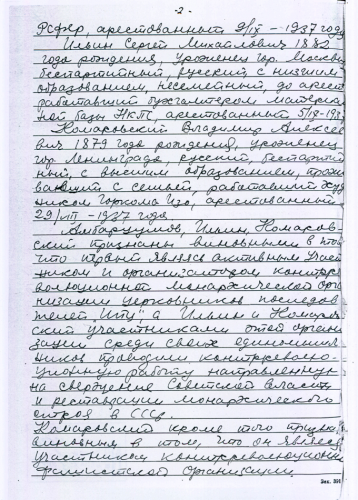 -2-
РСФСР, арестованный 9/IX - 1937 года
Ильин Сергей Михайлович 1882
года рождения, уроженец гор. Москвы
беспартийный, русский, с низшим
образованием, несемейный, до арест
работавший бухгалтером материаль
ной базы НКТП, арестованный 5/IX-193
Комаровский Владимир Алексее
вич 1879 года рождения, уроженец
гор. Ленинграда, русский, беспартий
ный, с высшим образованием, прожи
вающий с семьей, работавший худ
ником горкома Изо, арестованный
29/VIII - 1937 года.
Амбарцумов, Ильин, Комаров
ский признаны виновными в том
что первый являясь активным участ
ником и организатором контрре
волюционной монархической орга
низации церковников последова
телей "ИПЦ", а Ильин и Комаров
ский участниками этой органи
зации среди своих единомышлен
ников проводили контрреволю
ционную работу направленную
на свержение Советской власти
и реставрации монархического
строя в СССР.
Комаровский кроме того признан
виновным в том, что он являлся
участником контрреволюционн
фашистской организации.
Зак. 391